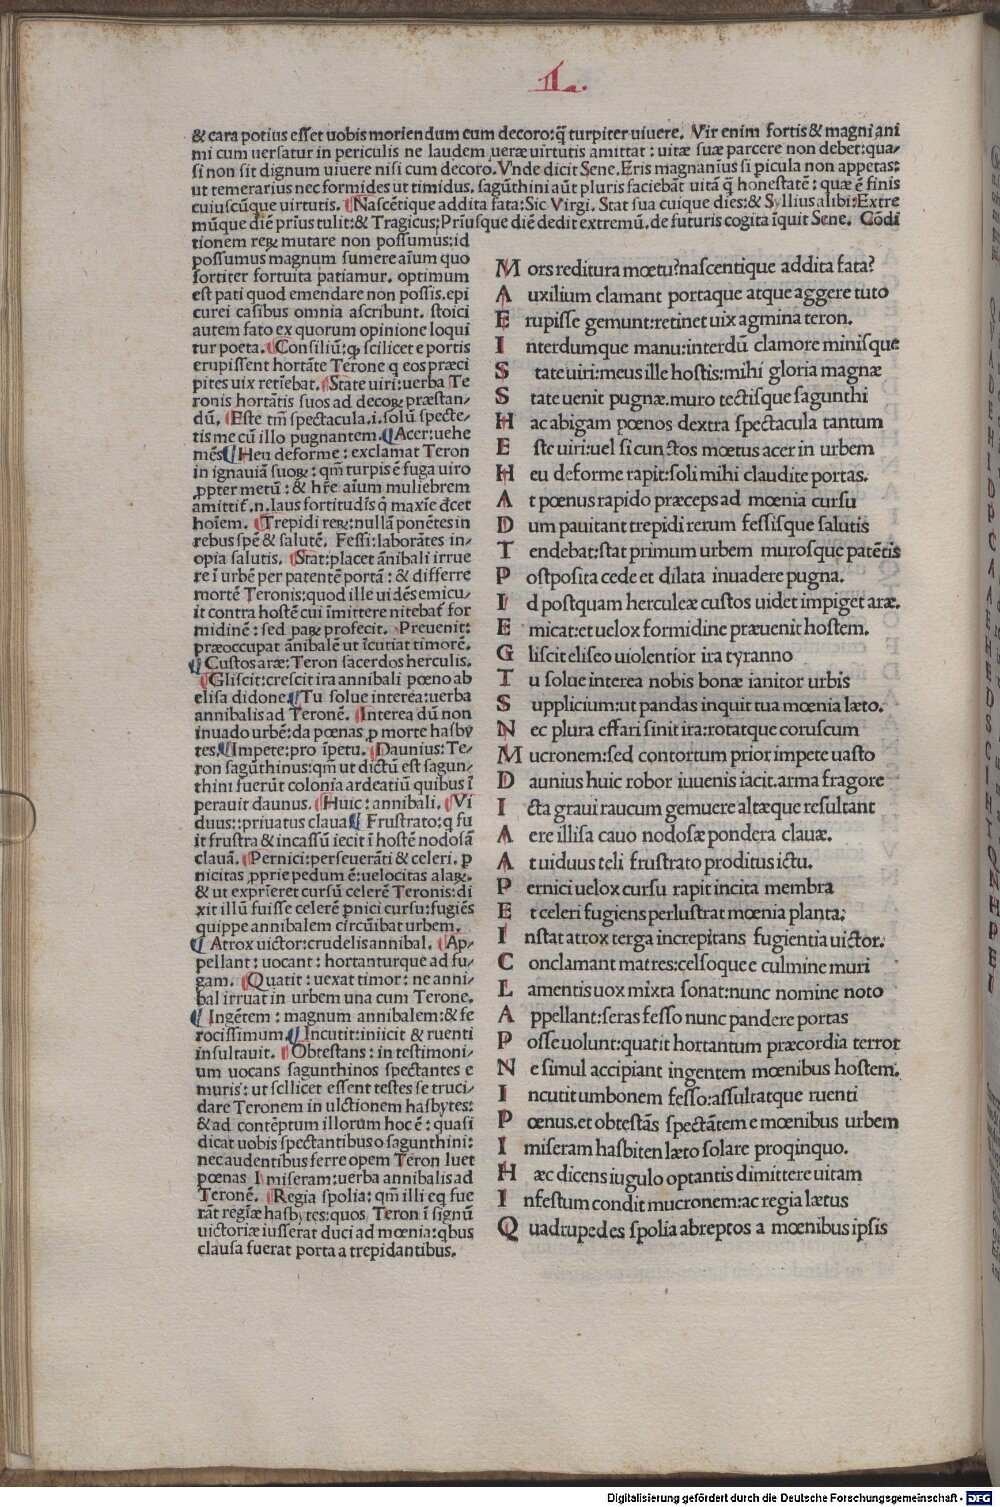 II.
& cara potius esset uobis moriendum cum decoro:q̃ turpiter uiuere. Vir enim fortis & magni ani
mi cum uersatur in periculis ne laudem ueræ uirtutis amittat : uitæ suæ parcere non debet:qua-
si non sit dignum uiuere nisi cum decoro. Vnde dicit Sene. Eris magnanīus si picula non appetas:
ut temerarius nec formides ut timidus. sagūthini aūt pluris faciebāt uitā q̃ honestatē : quæ ē finis
cuiuscūque uirtutis. Nascētique addita fata: Sic Virgi. Stat sua cuique dies:& Syllius alibi:Extre
mūque diē prīus tulit:& Tragicus: Prīusque diē dedit extremū. de futuris cogita īquit Sene. Cōdi
tionem reꝝ mutare non possumus:id
possumus magnum sumere aīum quo
fortiter fortuita patiamur. optimum
est pati quod emendare non possis. epi
curei casibus omnia ascribunt. stoici
autem fato ex quorum opinione loqui
tur poeta. Consiliū: ꝙ scilicet e portis
erupissent hortāte Terone q eos præci
pites uix retīebat. State uiri: uerba Te
ronis hortātis suos ad decoꝝ præstan-
dū. Este tm̄ spectacula .i. solū specte-
tis me cū illo pugnantem. Acer: uehe
mēs Heu deforme : exclamat Teron
in ignauiā suoꝝ : qm̄ turpis ē fuga uiro
ꝓpter metū : & hr̄e aīum muliebrem
amittit̄ .n. laus fortitudīs q̄ maxīe đcet
hoīem. Trepidi reꝝ: nullā ponētes in
rebus spē & salutē. Fessi: laborātes in-
opia salutis. Stat: placet ānibali irrue
re ī urbē per patentē portā : & differre
mortē Teronis: quod ille uidēs emicu-
it contra hostē cui īmittere nitebat̄ for
midinē : sed paꝝ profecit. Preuenit:
præoccupat ānibalē ut īcutiat timorē.
Custos aræ: Teron sacerdos herculis.
Gliscit: crescit ira annibali pœno ab
elisa didone. Tu solue interea: uerba
annibalis ad Teronē. Interea dū non
inuado urbē: da pœnas ꝑ morte hasby
tes. Impete: pro īpetu. Daunius: Te-
ron sagūthinus: qm̄ ut dictū est sagun-
thini fuerūt colonia ardeatiū quibus ī
perauit daunus. Huic: annibali. Vi
duus:: priuatus claua. Frustrato: q fu
it frustra & incassū iecit ī hostē nodosā
clauā. Pernici: perseuerāti & celeri. ꝑ
nicitas ꝓprie pedum ē: uelocitas alaꝝ.
& ut exprīeret cursū celerē Teronis: di
xit illū fuisse celerē ꝑnici cursu: fugiēs
quippe annibalem circūibat urbem.
Atrox uictor: crudelis annibal. Ap-
pellant : uocant : hortanturque ad fu-
gam. Quatit : uexat timor : ne anni-
bal irruat in urbem una cum Terone.
Ingētem : magnum annibalem: & fe
rocissimum. Incutit: iniicit & ruenti
insultauit. Obtestans : in testimoni-
um uocans sagunthinos spectantes e
muris : ut scilicet essent testes se truci-
dare Teronem in ulctionem hasbytes:
& ad contēptum illorum hoc ē : quasi
dicat uobis spectantibus o sagunthini:
nec audentibus ferre opem Teron luet
pœnas Imiseram: uerba annibalis ad
Teronē. Regia spolia: qm̄ illi eq fue
rāt regīæ hasbytes: quos Teron ī signū
uictoriæ iusserat duci ad mœnia: qbus
clausa fuerat porta a trepidantibus.
M ors reditura mœtu? nascentique addita fata?
A uxilium clamant portaque atque aggere tuto
E rupisse gemunt: retinet uix agmina teron.
I nterdumque manu: interdū clamore minisque
S tate uiri: meus ille hostis: mihi gloria magnæ
S tate uenit pugnæ. muro tectisque sagunthi
H ac abigam pœnos dextra spectacula tantum
E ste uiri: uel si cunctos mœtus acer in urbem
H eu deforme rapit: soli mihi claudite portas.
A t pœnus rapido præceps ad mœnia cursu
D um pauitant trepidi rerum fessisque salutis
T endebat: stat primum urbem murosque patētis
P ostposita cede et dilata inuadere pugna.
I d postquam herculeæ custos uidet impiget aræ.
E micat: et uelox formidine præuenit hostem.
G liscit eliseo uiolentior ira tyranno
T u solue interea nobis bonæ ianitor urbis
S upplicium: ut pandas inquit tua mœnia læto.
N ec plura effari sinit ira: rotatque coruscum
M ucronem: sed contortum prior impete uasto
D aunius huic robor iuuenis iacit. arma fragore
I cta graui raucum gemuere altæque resultant
A ere illisa cauo nodosæ pondera clauæ.
A t uiduus teli frustrato proditus ictu.
P ernici uelox cursu rapit incita membra
E t celeri fugiens perlustrat mœnia planta:
I nstat atrox terga increpitans fugientia uictor.
C onclamant matres: celsoque e culmine muri
L amentis uox mixta sonat: nunc nomine noto
A ppellant: seras fesso nunc pandere portas
P osse uolunt: quatit hortantum præcordia terror
N e simul accipiant ingentem mœnibus hostem.
I ncutit umbonem fesso: assultatque ruenti
P œnus. et obtestās spectātem e mœnibus urbem
I miseram hasbiten læto solare proqinquo.
H æc dicens iugulo optantis dimittere uitam
I nfestum condit mucronem: ac regia lætus
Q uadrupedes spolia abreptos a mœnibus ipsis
Digitalisierung gefördert durch die Deutsche Forschungsgemeinschaft - DFG